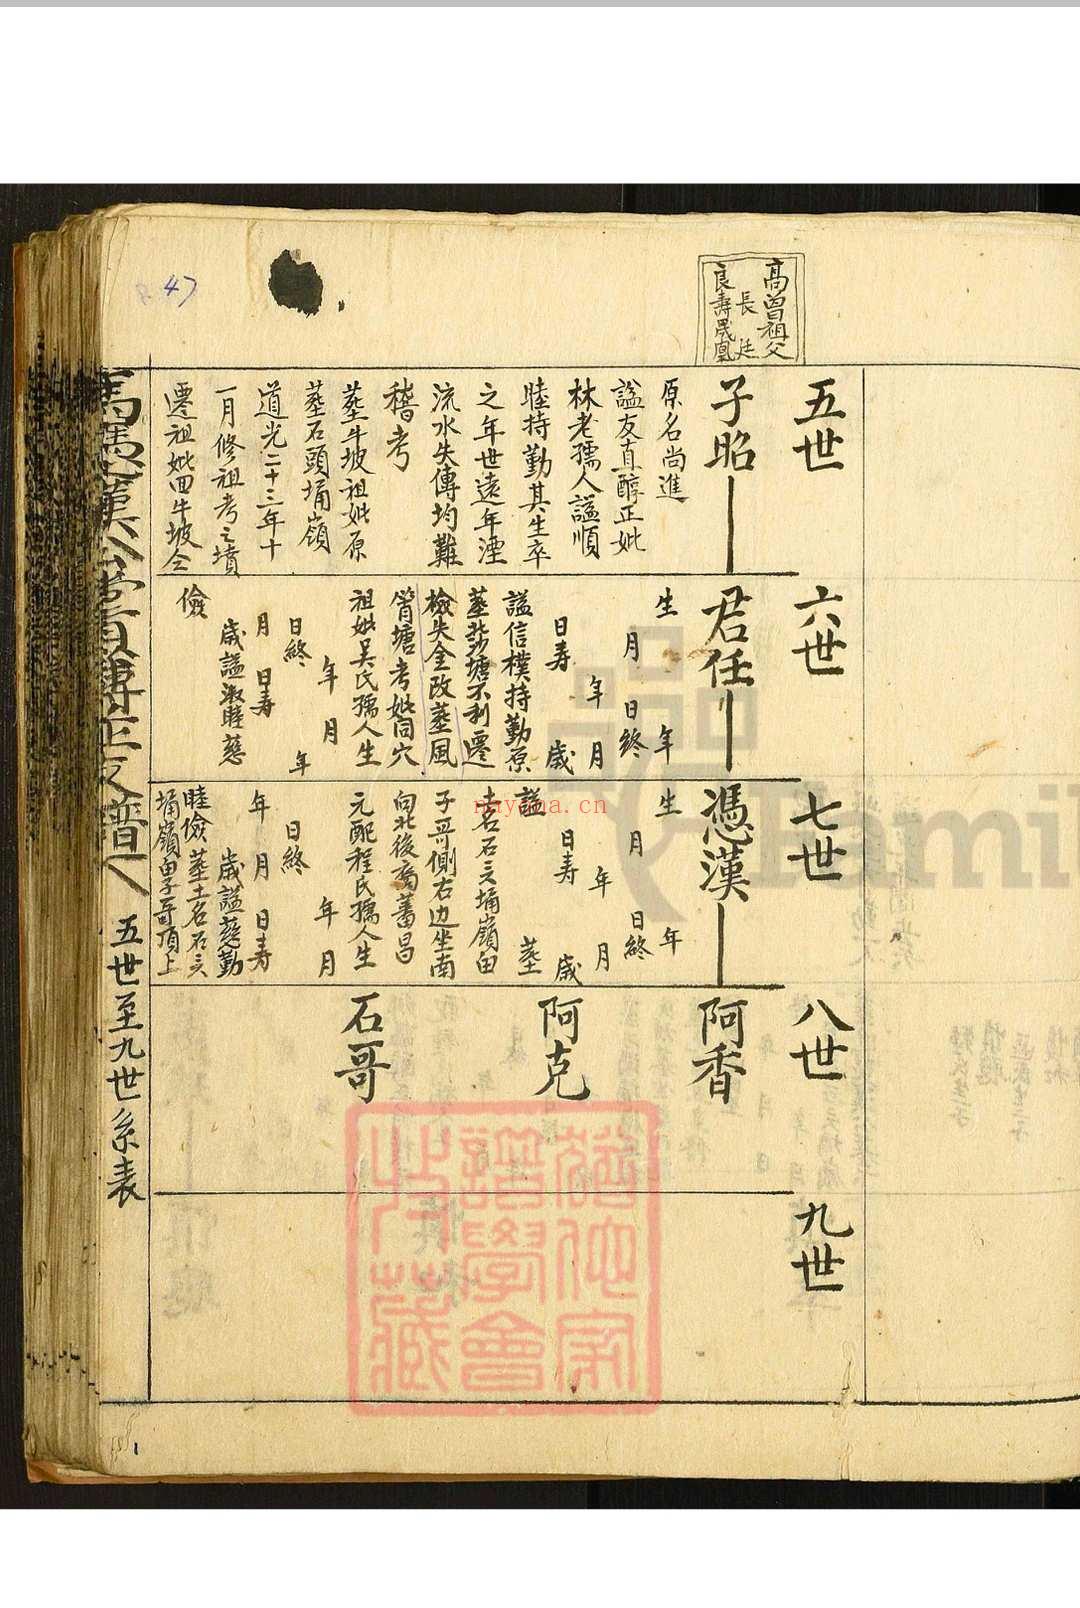 47
高曾祖父
長廷
良壽晟凰
五世
子昭
原名尚進
諡友直醇正妣
林老孺人諡順
睦持勤其生卒
之年世遠年湮
流水失傳均難
稽考
塟牛坡祖妣原
塟石頭埇嶺
道光二十三年十
一月修祖考之墳
遷祖妣回牛坡仝
六世
君任
生 年
月 日終
年 月
日寿 歲
諡信樸持勤原
塟莎塘不利遷
檢失金改塟風
箵塘考妣同穴
祖妣吴氏孺人生
年 月
日終 年
月 日寿
歲諡淑睦慈
儉
七世
憑漢
生 年
月 日終
年 月
日寿 歲
諡 塟
土名石叐埇嶺由
子哥側右边坐南
向北後裔蕃昌
元配程氏孺人生
年 月
日終
年 月 日寿
歲諡慈勤
睦儉塟土名石叐
埇嶺由子哥頂上
八世
阿香
阿克
石哥
九世
五世至九世系表
nayona.cn
1